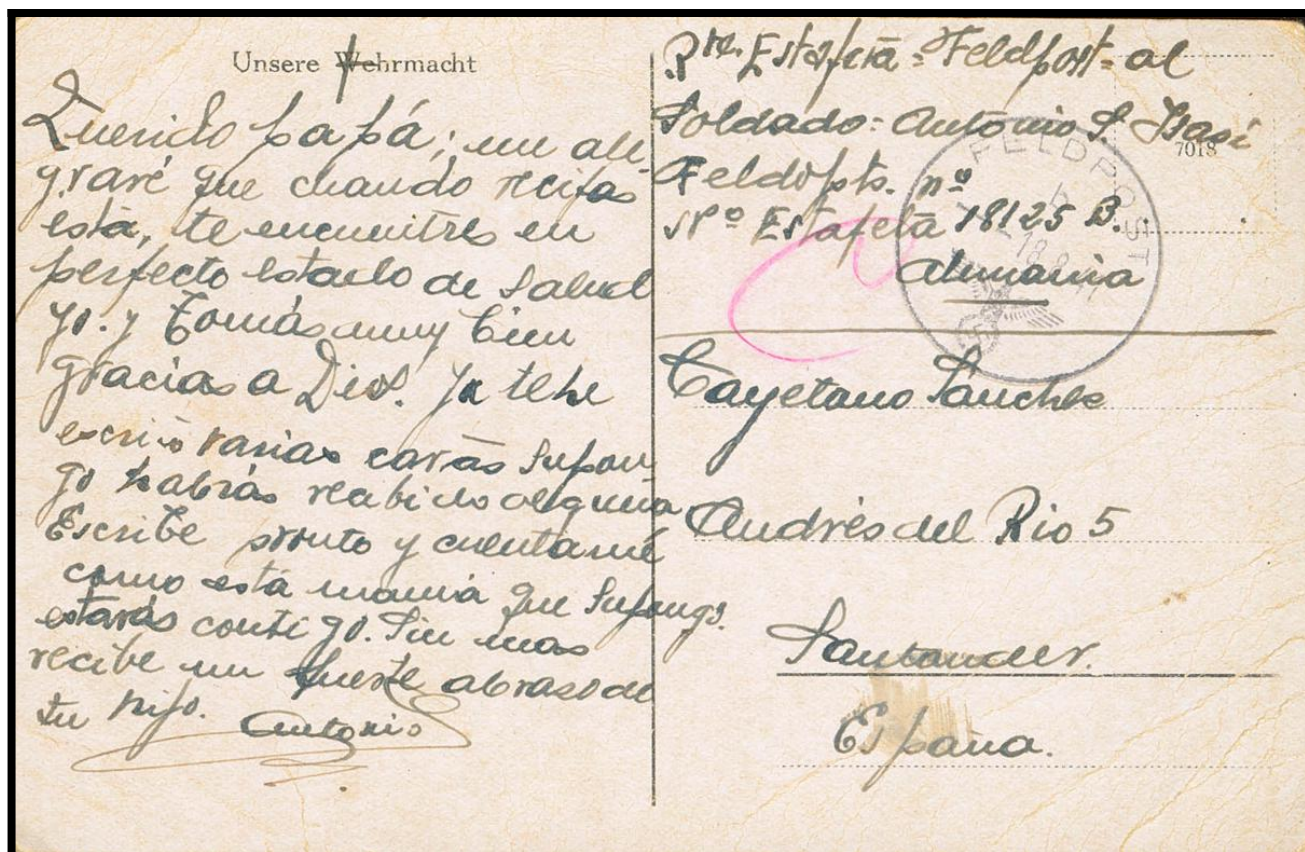 Unsere Wehrmacht
Querido papá; me ale
graré que cuando recibas
esta, te encuentres en
perfecto estado de salud
yo. y Tomás muy bien
gracias a Dios. Ya te he
escrito varias cartas supon
go habrás recibido alguna
Escribe pronto y cuentamé
como está mamá que supongo.
estarás contigo. Sin mas
recibe un fuerte abraso de
tu hijo. Antonio
Rte. Estafeta = Feldpost = al
Soldado: Antonio S.
7018
Feldopts. nº
Nº Estafeta 18125 B.
Alemania
FELDPOST
Cayetano Sanches
Andrés del Rio 5
Santander.
España.